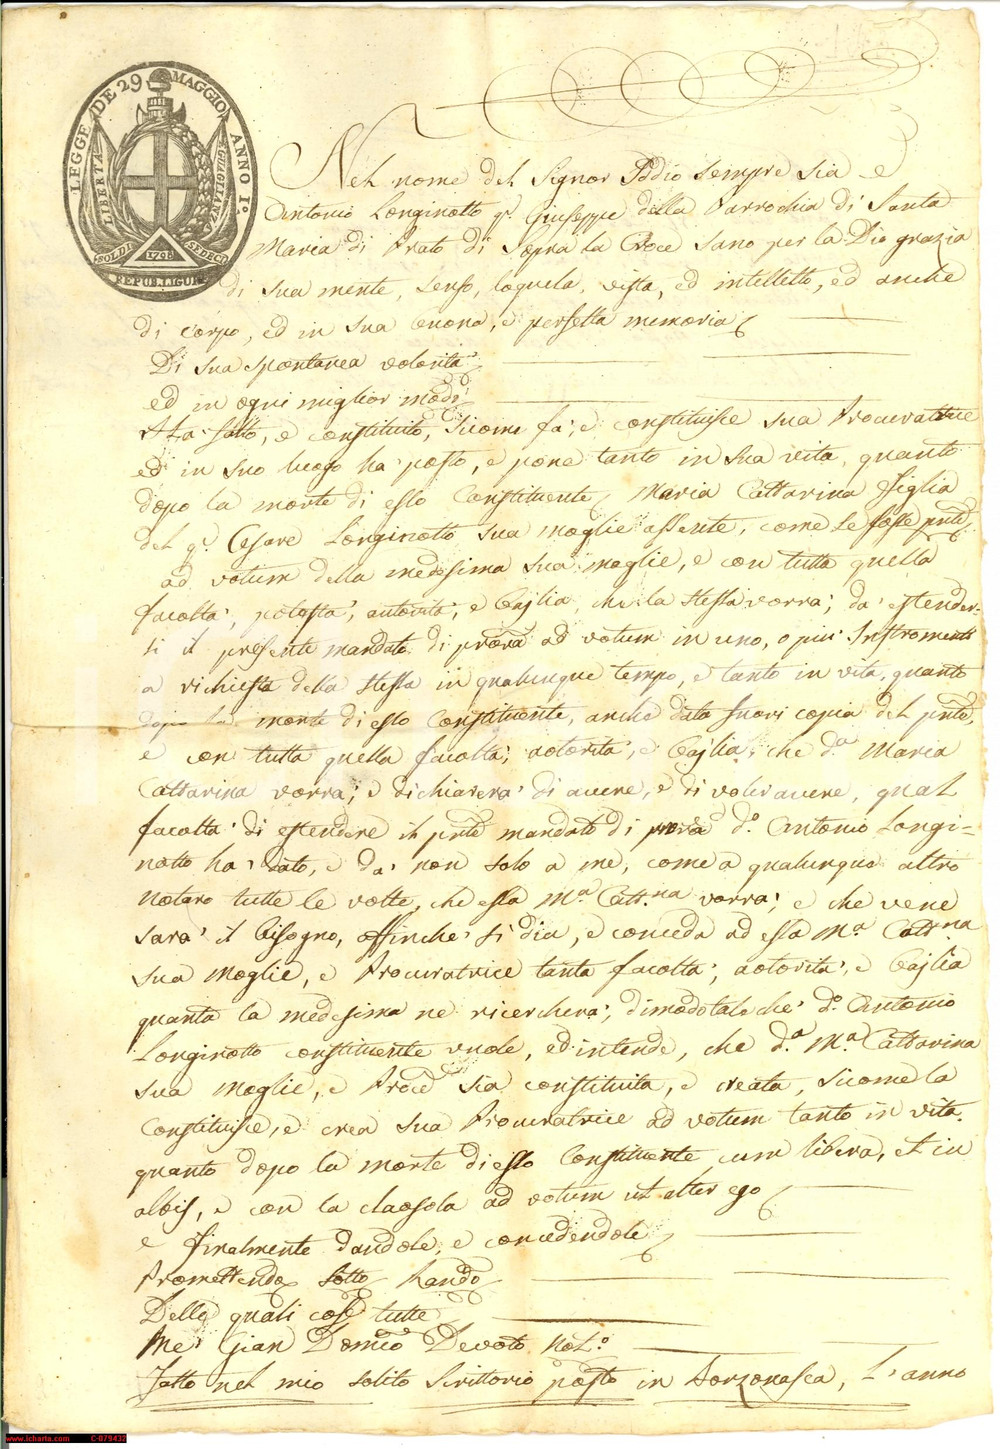 LEGGE DE 29 MAGGIO ANNO I.º
LIBERTÀ
EGUAGLIANZA
SOLDI SEDECI
1798
REPUB. LIGURE
Nel nome del Signor Iddio sempre sia
Antonio Longinotto q.m Giuseppe della Parrochia di Santa
Maria di Prato di Sopra la Croce sano per la Dio grazia
di sua mente, senso, loquela, vista, ed intelletto, ed anche
di corpo, ed in sua buona, e perfetta memoria
Di sua spontanea volontà
ed in ogni miglior modo
Ha fatto, e constituito, siccome fa, e constituisce sua Procuratrice
ed in suo luogo ha posto, e pone tanto in sua vita, quanto
dopo la morte di esso Constituente Maria Cattarina figlia
del q.m Cesare Longinotto sua moglie assente, come se fosse pnte
ad votum della medesima sua moglie, e con tutta quella
facoltà, potestà, autorità, e bajlia, che la stessa vorrà, da estender-
si il presente mandato di procra ad votum in uno, o più Instromenti
a richiesta della stessa in qualunque tempo, e tanto in vita, quanto
dopo la morte di esso Constituente, anche data fuori copia del pnte,
e con tutta quella facoltà, autorità, e bajlia, che d.a Maria
Cattarina vorrà, e dichiarerà di avere, e di voler avere, qual
facoltà di estendere il pnte mandato di procra d.o Antonio Longi=
notto ha dato, e dà non solo a me, come a qualunque altro
Notaro tutte le volte, che essa M.a Catt.na vorrà, e che vene
sarà il bisogno, affinchè si dia, e conceda ad essa M.a Catt.na
sua Moglie, e Procuratrice tanta facoltà, autorità, e bajlia
quanta la medesima ne ricercherà, dimodotalechè d.o Antonio
Longinotto constituente vuole, ed intende, che d.a M.a Cattarina
sua Moglie, e Proce sia constituita, e creata, siccome la
Constituisce, e crea sua Procuratrice ad votum tanto in vita
quanto dopo la morte di esso Constituente cum libera, et in
albis, e con la claosola ad votum ut alter ego
e finalmente dandole, e concedendole
Promettendo Sotto Rando
Delle quali cose tutte
Me Gian Domco Devoto Not.o
Fatto nel mio solito Scrittorio posto in Borzonasca, l'anno
www.icharta.com C-079432